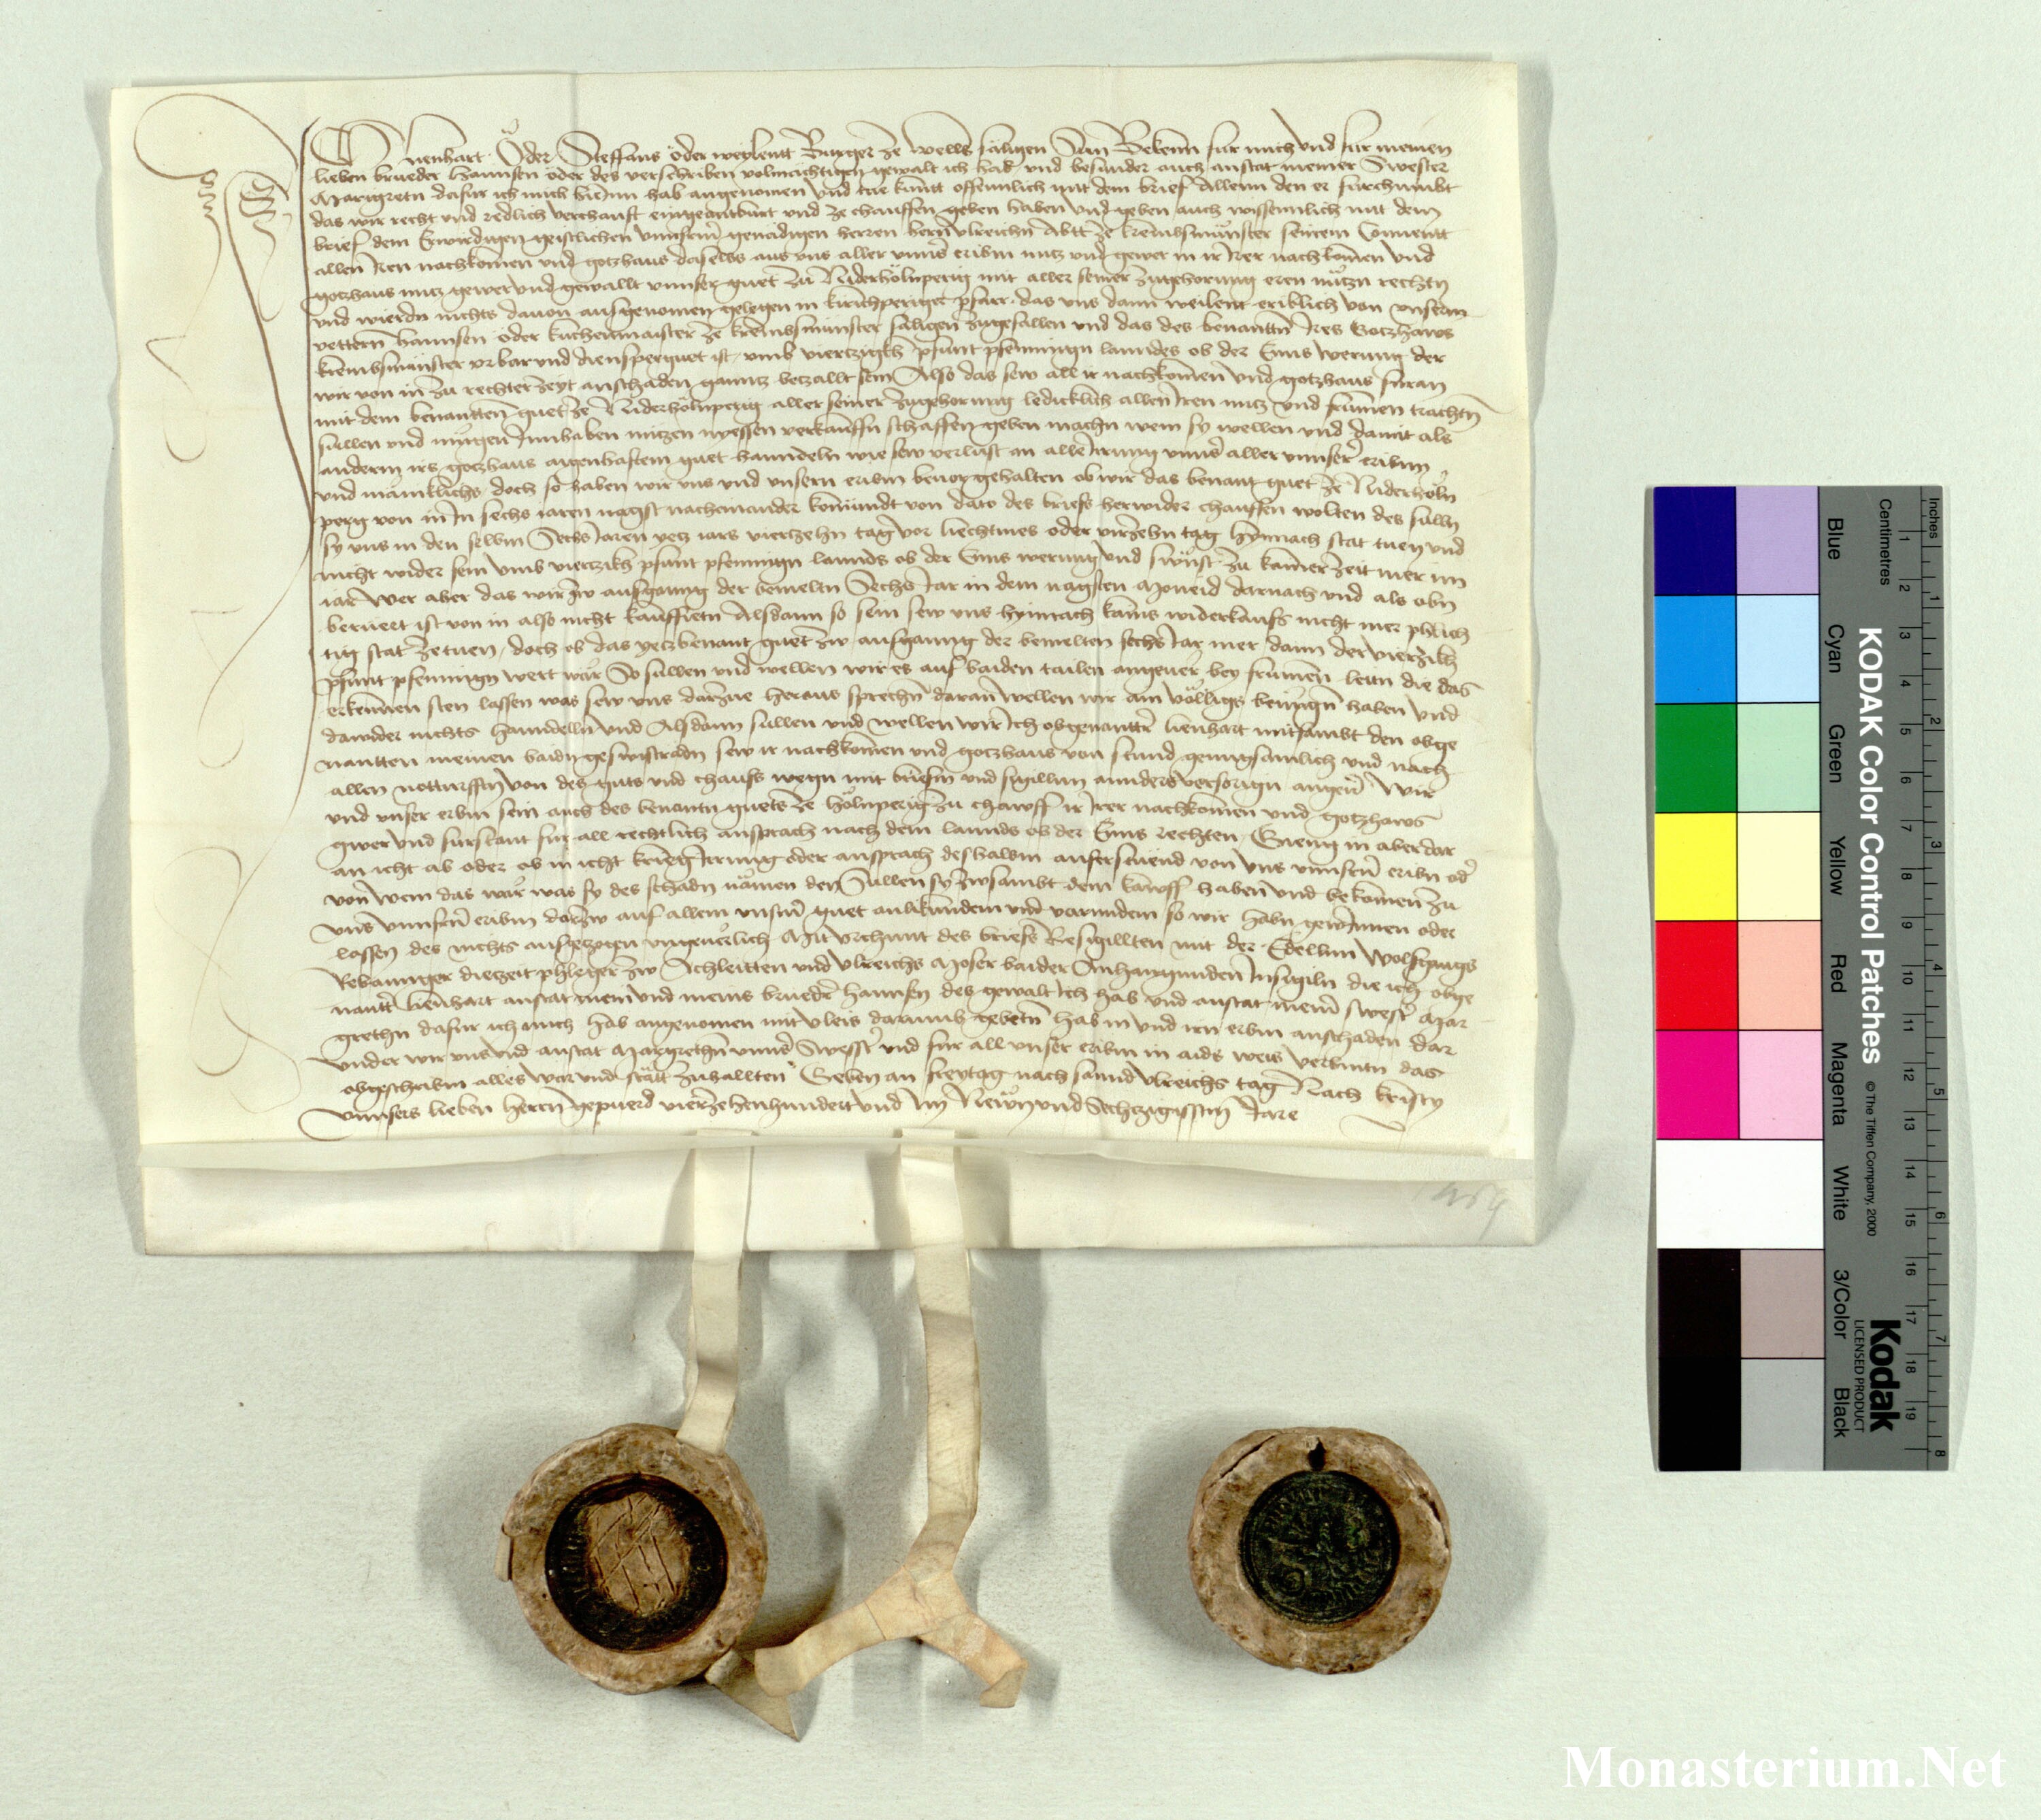 Ich Lienhart Öder Steffans öder weylent Burger ze Wells säligen Sun Bekenn für mich und für meinen
lieben brueder Hannsen öder des verschriben volmächtigen gewalt ich hab und besunder auch anstat meiner Swester
Margretn dafur ich mich hierinn hab angenomen Und tue kuntt offennlich mit dem brief Allenn den er fürchumbt
das wir recht und redlich verchaufft eingeantburt und ze chauffen geben haben Und geben auch wissennlich mit dem
brief dem Erwirdigen geistlichen unnserm genädigen herren hern Ulreichn Abtt ze krembsmünster seinem Conventt
allen Iren nachkomen und gotzhaus daselbs aus uns aller unns eribm nutz und gewer in ir Irer nachkomen Und
gotzhaus nutz gewer und gewallt unnser guet zu Niderhölnperig mit aller seiner zugehorung eren nützn rechtn
und wierdn nichts davon ausgenomen gelegen in kirichperiger pfarr das uns dann weilent eriblich von unserm
vettern hannsen öder kuchenmaister ze krembsmünster säligen zugefallen und das des benanttn Irs Gotzhaws
krembsmünster urbar und diensperguet ist umb viertzigkh pfunt pfenningn lanndes ob der Enns werung der
wir von in zu rechter zeyt anschaden ganntz betzallt sein Also das sew all ir nachkomen Und gotzhaus füran
mit dem benantten guet ze Niderhölnperig aller seiner zugehorung ledicklich allen Iren nutz und frumen trachtn
sullen und mugen Innhaben nützen nyessen verkauffn schaffen geben machn wem sy wellen und damit als
anderm irs gotzhaus aigenhaftem guet hanndeln wie sew verlüst an alle Irrung unns aller unnser eribm
und mäinklichs doch so haben wir uns und unsern eribm bevor gehalten ob wir das benant guet ze Niderhöln
perg von in In sechs iaren nagst nacheinander komundt von dato des briefs herwider chauffen wolten des sulln
sy uns in den selbm Sechs Iaren yetz iars viertzehn tag vor liechtmes oder virzehn tag hynnach stat tuen und
nicht wider sein umb viertzikh pfunt pfenningn lannds ob der Enns werung Und swüst zu kainer zeit mer im
iar Wer aber das wir zw ausganng der bemeltn Sechs Iar in dem nagsten Moneid darnach und als obn
beruert ist von in also nicht kaufften Alsdann so sein sew uns hynnach kains widerkaufs nicht mer phlich
tig stat ze tuen doch ob das yetzbenant guet zw ausganng der bemelten sechs Iar mer dann der vierzikh
pfunt pfenningn wert wär So sullen und wellen wir es auf baiden tailen angever bey frumen leutn die das
erkennen sten lassen was sew uns darzue heraus sprechn daran wellen wir ain völligs benügn haben und
dawider nichts hanndelln Und Alsdann sullen und wellen wir Ich obgenantter lienhart mitsambt den obge
nantten meinen baidn geswistradn sew ir nachkomen und gotzhaus von stund genugsamlich und nach
allen notturfftn von des guts und chaufs wegn mit briefm und sigilln annders versorign angever Wir
und unser erbm sein auch des benantn guets ze hölnperig zu chawff ir Irer nachkomen und gotzhaws
gwer und fürstant für all rechtlich ansprach nach dem lannds ob der Enns rechten Gieng in aber dar
an icht ab oder ob in icht krieg Irrung oder ansprach deshalbm auferstuend von uns unnsern eribm oder
von wem das wär was sy des schadn nämen den Sullen sy zwsambt dem kauff haben und bekomen zu
uns unnsern eribm darzw auf allem unserm guet anlikundem und varundem so wir habn gewinnen oder
lassen des nichts ausgetzogen ungeverlich Mit urchunt des briefs Besigillten mit der Edellnn Wolfgangs
Rebanniger dietzeit phleger zw Schleitten und Ulreichs Moser baider Anhangunden Insigiln die ich obge
nantt lienhart anstat mein und meins brueder hannsn des gewalt Ich hab und anstat meiner swester Mar
grethn dafur ich mich hab angenomen mit vleis darumb gebetn hab in und irn erbm anschaden dar
under wir uns und anstat Margrethn unnser Swesster und für all unser eribm in aids weis verbintn das
obgeschribm alles war und stätt zuhallten Geben an freytag nach sannd Ulreichs tag Nach kristy
unnsers lieben herrn gepuerd vierzehenhundert und Im Newn und Sechtzigisstm Jare
1469
KODAK Color Control Patches © The Tiffen Company, 2000
Kodak
LICENSED PRODUCT
Blue Cyan Green Yellow Red Magenta White 3/Color Black
Centimetres 1 2 3 4 5 6 7 8 9 10 11 12 13 14 15 16 17 18 19
Inches 1 2 3 4 5 6 7 8
Monasterium.Net